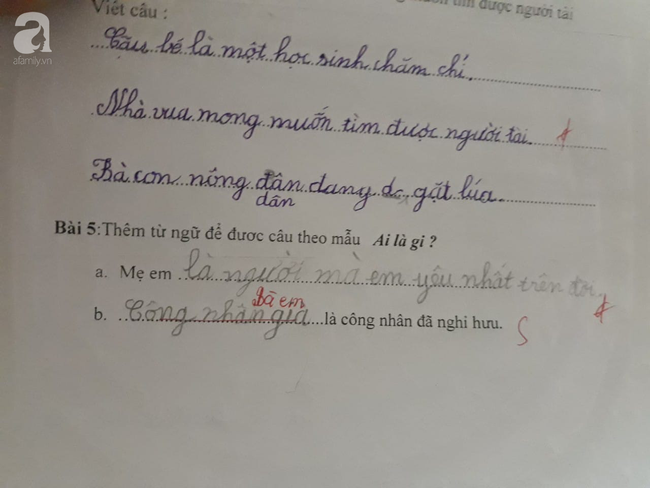 a
afamily.vn
muốn tìm được người tài
Viết câu :
Cậu bé là một học sinh chăm chỉ.
Nhà vua mong muốn tìm được người tài.
Bà con nông đân dang gặt lúa.
dân
Bài 5:Thêm từ ngữ để được câu theo mẫu Ai là gì ?
a. Mẹ em là người mà em yêu nhất trên đời.
Bà em
b. Công nhân già là công nhân đã nghỉ hưu.
S